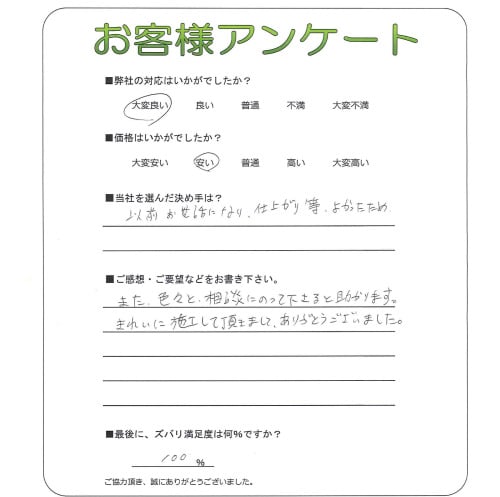 お客様アンケート
■弊社の対応はいかがでしたか?
大変良い 良い 普通 不満 大変不満
■価格はいかがでしたか?
大変安い 安い 普通 高い 大変高い
■当社を選んだ決め手は?
以前お世話になり、仕上がり等、よかったため
■ご感想・ご要望などをお書き下さい。
また、色々と、相談にのって下さると助かります。
きれいに施工して頂きまして、ありがとうございました。
■最後に、ズバリ満足度は何%ですか?
100 %
ご協力頂き、誠にありがとうございました。